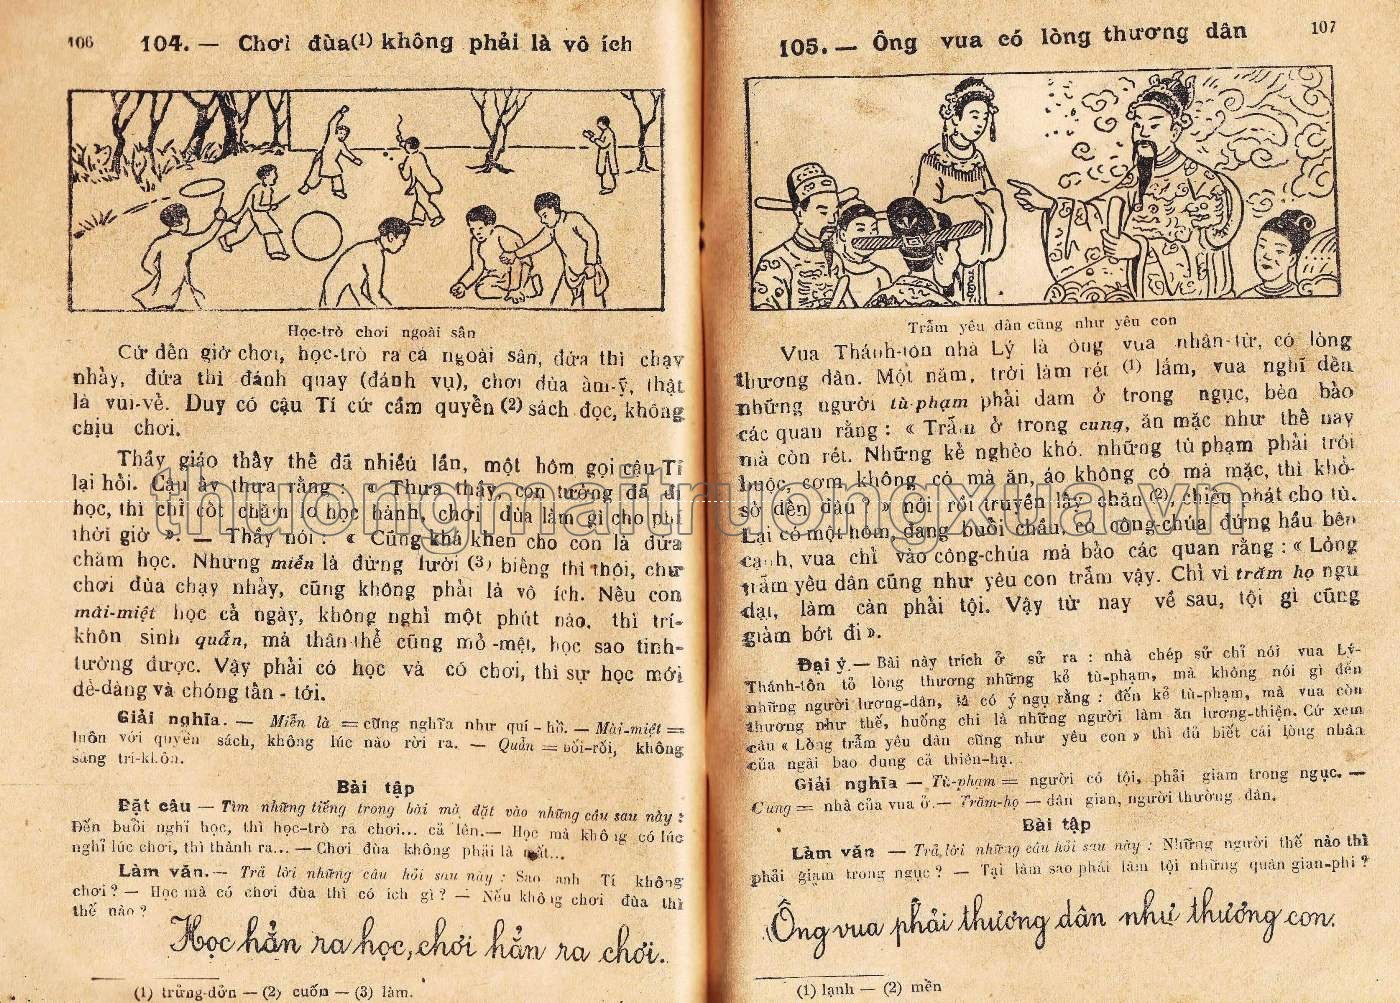 106
104. — Chơi đùa(1) không phải là vô ích
Học-trò chơi ngoài sân
Cứ đến giờ chơi, học-trò ra cả ngoài sân, đứa thì chạy
nhảy, đứa thì đánh quay (đánh vụ), chơi đùa ầm-ỹ, thật
là vui-vẻ. Duy có cậu Tí cứ cầm quyển (2) sách đọc, không
chịu chơi.
Thầy giáo thấy thế đã nhiều lần, một hôm gọi cậu Tí
lại hỏi. Cậu ấy thưa rằng : « Thưa thầy, con tưởng đã đi
học, thì chỉ cốt chăm lo học hành, chơi đùa làm gì cho phí
thời giờ ». — Thầy nói : « Cũng khá khen cho con là đứa
chăm học. Nhưng miễn là đừng lười (3) biếng thì thôi, chứ
chơi đùa chạy nhảy, cũng không phải là vô ích. Nếu con
mải-miệt học cả ngày, không nghỉ một phút nào, thì trí-
khôn sinh quẩn, mà thân-thể cũng mỏ-mệt, học sao tinh-
tường được. Vậy phải có học và có chơi, thì sự học mới
dễ-dàng và chóng tấn - tới.
Giải nghĩa. — Miễn là = cũng nghĩa như quí - hồ. — Mải-miệt =
luôn với quyển sách, không lúc nào rời ra. — Quẩn = bối-rối, không
sáng trí-khôn.
Bài tập
Đặt câu — Tìm những tiếng trong bài mà đặt vào những câu sau này :
Đến buổi nghỉ học, thì học-trò ra chơi... cả lên.— Học mà không có lúc
nghỉ lúc chơi, thì thành ra... — Chơi đùa không phải là mất...
Làm văn.— Trả lời những câu hỏi sau này : Sao anh Tí không
chơi ? — Học mà có chơi đùa thì có ích gì ? — Nếu không chơi đùa thì
thế nào ?
Học hẳn ra học, chơi hẳn ra chơi.
(1) trửng-dởn — (2) cuốn — (3) làm.
107
105. — Ông vua có lòng thương dân
Trẫm yêu dân cũng như yêu con
Vua Thánh-tôn nhà Lý là ông vua nhân-từ, có lòng
thương dân. Một năm, trời làm rét (1) lắm, vua nghĩ đến
những người tù-phạm phải dam ở trong ngục, bèn bảo
các quan rằng : « Trẫm ở trong cung, ăn mặc như thế này
mà còn rét. Những kẻ nghèo khó, những tù phạm phải trói
buộc, cơm không có mà ăn, áo không có mà mặc, thì khổ-
sở đến đâu ! » nói rồi truyền lấy chăn (2), chiếu phát cho tù.
Lại có một hôm, đang buổi chầu, có công-chúa đứng hầu bên
cạnh, vua chỉ vào công-chúa mà bảo các quan rằng : « Lòng
trẫm yêu dân cũng như yêu con trẫm vậy. Chỉ vì trăm họ ngu
dại, làm càn phải tội. Vậy từ nay về sau, tội gì cũng
giảm bớt đi ».
Đại ý.— Bài này trích ở sử ra : nhà chép sử chỉ nói vua Lý-
Thánh-tôn tỏ lòng thương những kẻ tù-phạm, mà không nói gì đến
những người lương-dân, là có ý ngụ rằng : đến kẻ tù-phạm, mà vua còn
thương như thế, huống chi là những người làm ăn lương-thiện. Cứ xem
câu « Lòng trẫm yêu dân cũng như yêu con » thì đủ biết cái lòng nhân
của ngài bao dung cả thiên-hạ.
Giải nghĩa — Tù-phạm = người có tội, phải giam trong ngục. —
Cung = nhà của vua ở.— Trăm-họ — dân gian, người thường dân.
Bài tập
Làm văn — Trả lời những câu hỏi sau này : Những người thế nào thì
phải giam trong ngục ? — Tại làm sao phải làm tội những quân gian-phi ?
Ông vua phải thương dân như thương con.
(1) lạnh — (2) mền
thuongmaitruongxua.vn